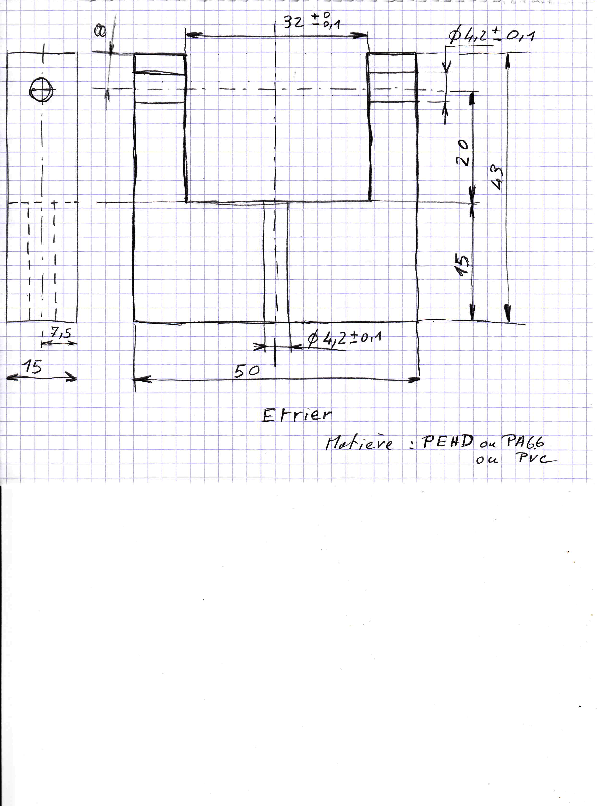 8
32 ± 0 0,1
ϕ4,2 ± 0,1
20
43
15
7,5
15
ϕ 4,2 ± 0,1
50
Etrier
Matière : PEHD ou PA6.6
ou PVC